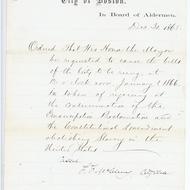 City of Boston.
In Board of Aldermen,
Dec 30 1865.
Ordered That His Honor the Mayor
be requested to cause the bells
of the City to be rung, at
12 o'clock noon January 1 1866,
in token of rejoicing at
the
Emancipation Proclamation and
the Constitutional Amendment
abolishing Slavery in the
United States
City Clerk